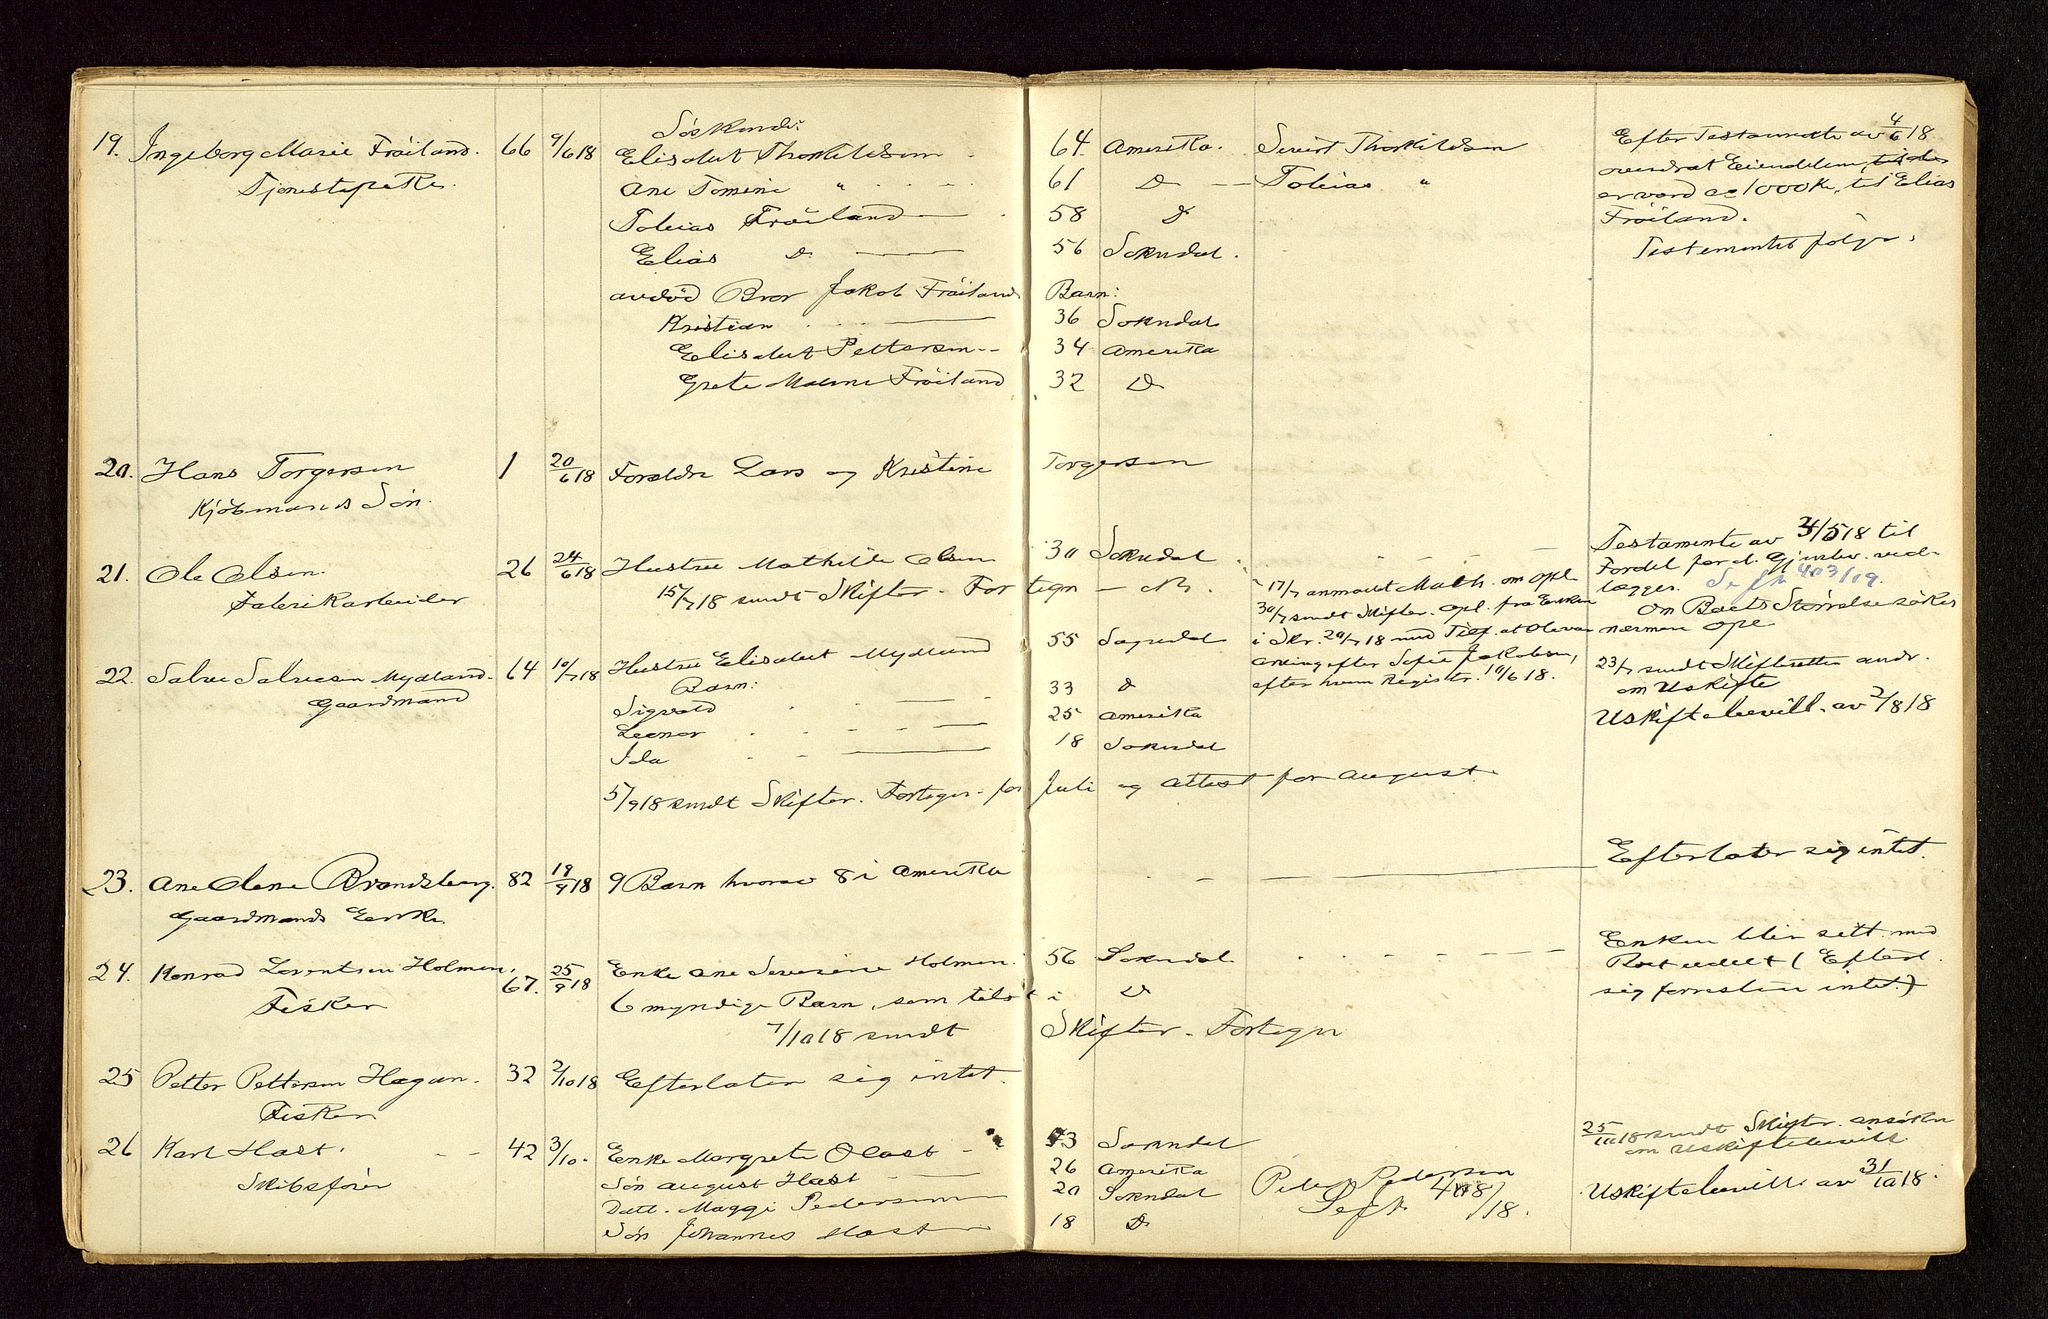 19. Ingeborg Marie Fröiland. 66 9/6 18 Söskende:
Tjenestepike. Elisabet Thorkildsen 64 Amerika. Sivert Thorkildsen
Ane Tomine " 61 D Tobias "
Tobias Fröiland 58 D
Elias D 56 Sokndal.
avdöd Bror Jakob Fröiland Barn:
Kristian 36 Sokndal
Elisabet Pettersen 34 Amerika
Grete Malene Fröiland 32 D
Efter Testamente av 4/6 18
overdrat Eiendelen,
av værd ca 1000 kr. til Elias
Fröiland.
Testementet følger.
20. Hans Torgersen 1 20/6 18 Forældre Lars og Kristine Torgersen
Kjöbmands Sön.
21. Ole Olsen. 26 24/6 18 Hustru Mathilde Olsen 30 Sokndal
Fabrikarbeider 15/7 18 sendt Skifter. Fortegn
17/7 anmodet Math. om opl.
30/7 sendt Skifter. opl. fra Enken
i Skr. 29/7 18 med Tilf. at Ole var
arving efter Sofie Jakobsen,
efter hvem Registr. 10/6 18.
Testamente av 31/5 18 til
Fordel for d. Gjenlev. ved-
lægges. Se Jr 403/19.
Om Boets Størrelse søkes
nærmere opl
22. Salve Salvesen Mydland. 64 10/7 18 Hustru Elisabet Mydland 55 Sogndal
Gaardmand Barn:
Sigvald 33 D
Leonor 25 Amerika
Ida 18 Sokndal
5/9 18 sendt Skifter. Fortegn. for Juli og Attest for August.
23/7 sendt Skifteretten andr.
om Uskifte
Uskiftebevill. av 2/8 18
23. Ane Olene Brandsberg. 82 19/9 18 9 Barn hvorav 8 i Amerika Efterlater sig intet.
Gaardmands Enke.
24. Konrad Lorentsen Holmen. 67. 25/9 18 Enke Ane Severine Holmen. 56 Sokndal
Fisker 6 myndige Barn, som tilst i D
7/10 18 sendt Skifter. Fortegn
Enken blir sitt. med
Boet udelt (Efterl.
sig forresten intet.)
25 Petter Pettersen Hagan. 32 2/10 18 Efterlater sig intet.
Fisker
26 Karl Hast. 42 3/10. Enke Margrete O Hast 43 Sokndal
Skibsfører Sön August Hast 26 Amerika
Datt. Maggi Pedersen 20 Sokndal Peder Pedersen
Sön Johannes Hast 18 D Se Jr. 408/18.
25/10 18 sendt Skifter. ansøkn
om Uskiftebevill
Uskiftebevill. av 31/10 18.